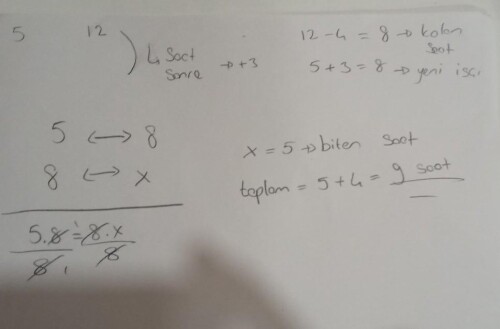 5 12
4 Saat
sonra → +3
12 - 4 = 8 → kalan
saat
5 + 3 = 8 → yeni işçi
5 ↔ 8
8 ↔ x
5.8 = 8.x
8 8
x = 5 → biten saat
toplam = 5 + 4 = 9 saat